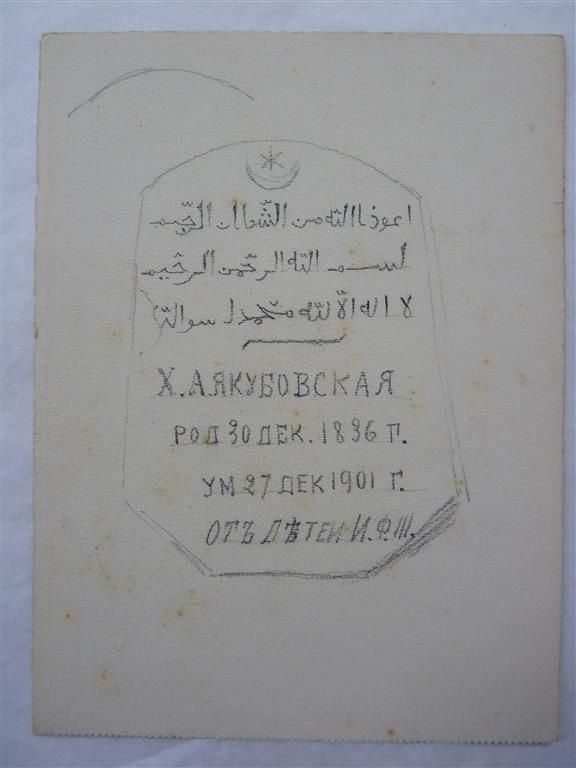 اعوذ باالله من الشيطان الرجيم
بسم الله الرحمن الرحيم
لا اله الا الله محمد رسوالله
Х. А. ЯКУБОВСКАЯ
РОД 30 ДЕК. 1836 Г.
УМ 27 ДЕК 1901 Г.
ОТЪ ДѢТЕЙ И. Ф. Ш.